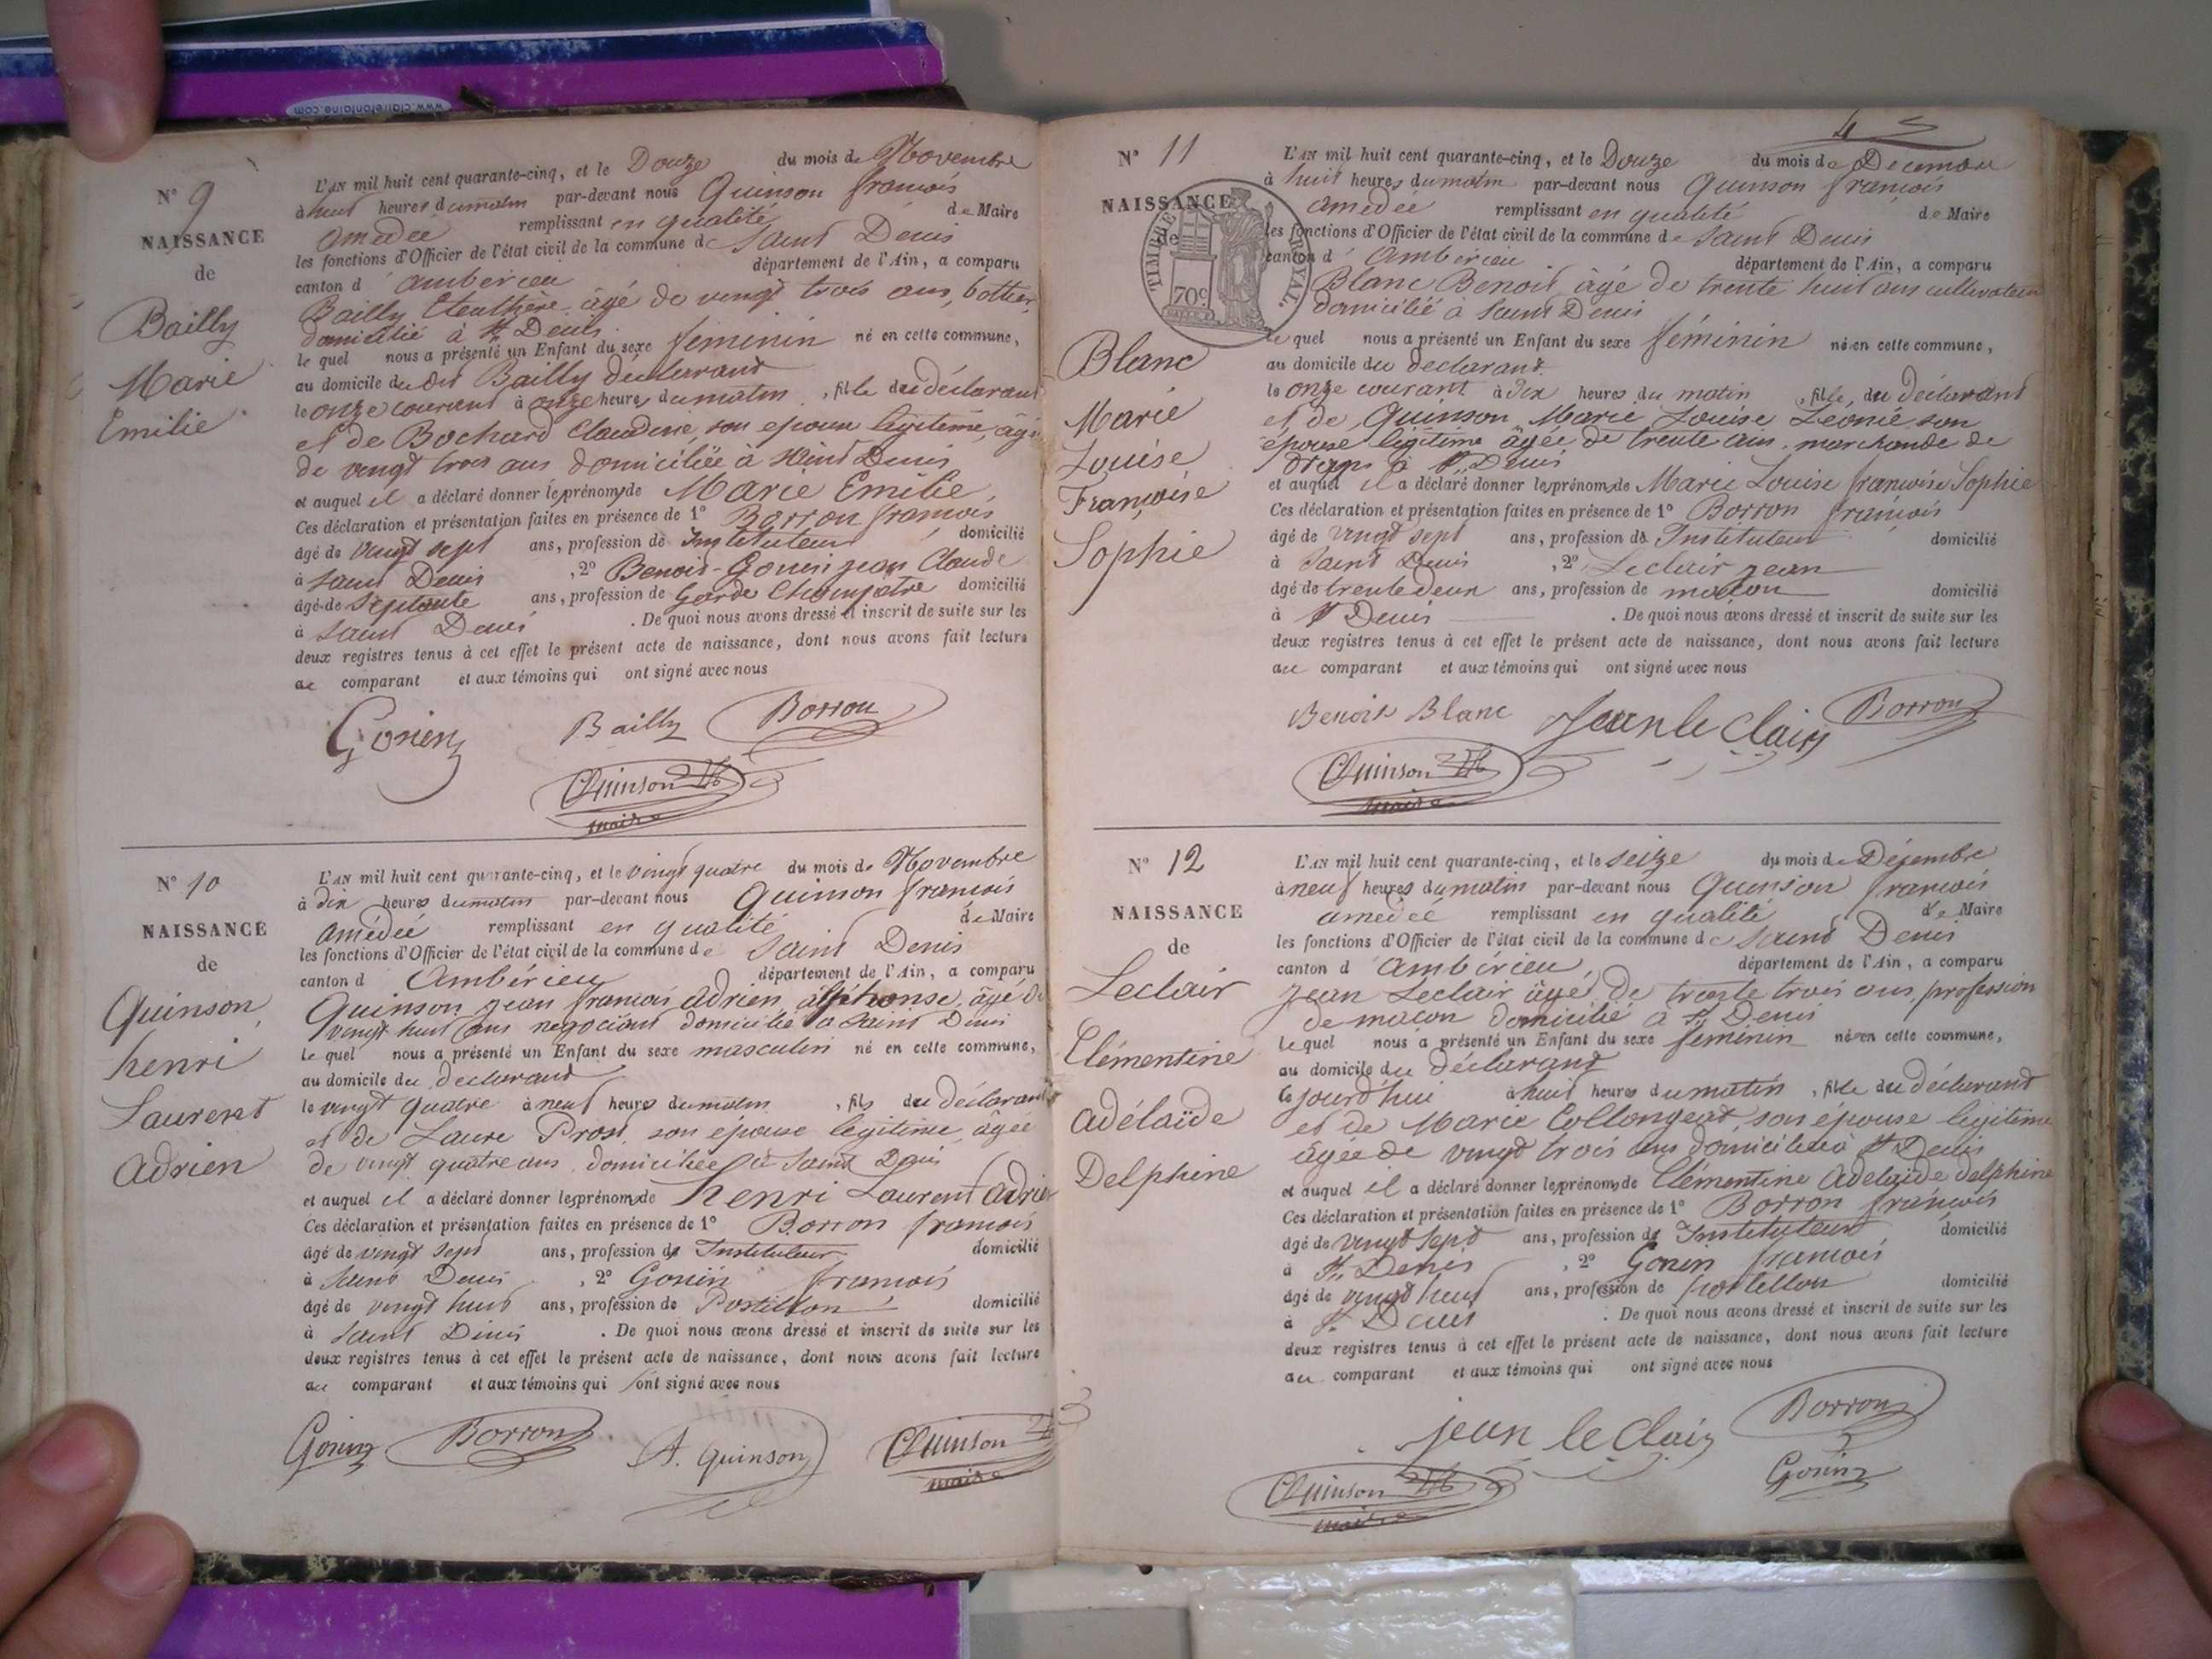 www.clairefontaine.com
N° 9
NAISSANCE
de
Bailly
Marie
Emilie
L'AN mil huit cent quarante-cinq, et le Douze du mois de Novembre
à huit heures du matin par-devant nous Quinson francois
amédée remplissant en qualité de Maire
les fonctions d'Officier de l'état civil de la commune de Saint Denis
canton d' ambérieu département de l'Ain, a comparu
Bailly Eleuthère âgé de vingt trois ans, bottier
domicilié à St Denis
le quel nous a présenté un Enfant du sexe féminin né en cette commune,
au domicile du dit Bailly déclarant
le onze courant à onze heures du matin, fille du déclarant
et de Bochard Claudine, son epouse légitime, âgée
de vingt trois ans domiciliée à Saint Denis
et auquel il a déclaré donner les prénoms de Marie Emilie,
Ces déclaration et présentation faites en présence de 1° Borron francois
âgé de vingt sept ans, profession de Instituteur domicilié
à Saint Denis, 2° Benoit-Gonin jean Claude
âgé de septante ans, profession de Garde Champêtre domicilié
à Saint Denis. De quoi nous avons dressé et inscrit de suite sur les
deux registres tenus à cet effet le présent acte de naissance, dont nous avons fait lecture
au comparant et aux témoins qui ont signé avec nous
Gonin Bailly Borron
Quinson
maire
N° 10
NAISSANCE
de
Quinson
henri
Laurent
adrien
L'AN mil huit cent quarante-cinq, et le vingt quatre du mois de Novembre
à dix heures du matin par-devant nous Quinson francois
amédée remplissant en qualité de Maire
les fonctions d'Officier de l'état civil de la commune de Saint Denis
canton d' Ambérieu département de l'Ain, a comparu
Quinson jean francois adrien alphonse, âgé de
vingt huit ans négociant domicilié à Saint Denis
le quel nous a présenté un Enfant du sexe masculin né en cette commune,
au domicile du declarant
le vingt quatre à neuf heures du matin, fils du déclarant
et de Laure Prost, son epouse légitime, âgée
de vingt quatre ans domiciliée à Saint Denis
et auquel il a déclaré donner les prénoms de henri Laurent adrien
Ces déclaration et présentation faites en présence de 1° Borron francois
âgé de vingt sept ans, profession de Instituteur domicilié
à Saint Denis, 2° Gonin francois
âgé de vingt huit ans, profession de Postillon domicilié
à Saint Denis. De quoi nous avons dressé et inscrit de suite sur les
deux registres tenus à cet effet le présent acte de naissance, dont nous avons fait lecture
au comparant et aux témoins qui ont signé avec nous
Gonin Borron A. Quinson Quinson
maire
N° 11
NAISSANCE
de
TIMBRE ROYAL
70c
Blanc
Marie
Louise
Françoise
Sophie
L'AN mil huit cent quarante-cinq, et le Douze du mois de Decembre
à huit heures du matin par-devant nous Quinson francois
amédée remplissant en qualité de Maire
les fonctions d'Officier de l'état civil de la commune de Saint Denis
canton d' Ambérieu département de l'Ain, a comparu
Blanc Benoit âgé de trente huit ans cultivateur
domicilié à Saint Denis
le quel nous a présenté un Enfant du sexe féminin né en cette commune,
au domicile du declarant
le onze courant à dix heures du matin, fille, du déclarant
et de Quinson Marie Louise Léonie son
épouse légitime âgée de trente ans, marchande de
draps à St Denis
et auquel il a déclaré donner les prénoms de Marie Louise francoise Sophie
Ces déclaration et présentation faites en présence de 1° Borron francois
âgé de vingt sept ans, profession de Instituteur domicilié
à Saint Denis, 2° Leclair jean
âgé de trente deux ans, profession de maçon domicilié
à St Denis. De quoi nous avons dressé et inscrit de suite sur les
deux registres tenus à cet effet le présent acte de naissance, dont nous avons fait lecture
au comparant et aux témoins qui ont signé avec nous
Benoit Blanc Jean le Clair Borron
Quinson
maire
N° 12
NAISSANCE
de
Leclair
Clémentine
adélaïde
Delphine
L'AN mil huit cent quarante-cinq, et le seize du mois de Décembre
à neuf heures du matin par-devant nous Quinson francois
amédée remplissant en qualité de Maire
les fonctions d'Officier de l'état civil de la commune de Saint Denis
canton d' ambérieu département de l'Ain, a comparu
jean Leclair âgé de trente trois ans, profession
de macon domicilié à St Denis
le quel nous a présenté un Enfant du sexe féminin né en cette commune,
au domicile du déclarant
ce jourd'hui à huit heures du matin, fille du déclarant
et de Marie Collongeat, son épouse légitime
âgée de vingt trois ans domiciliée à St Denis
et auquel il a déclaré donner les prénoms de Clémentine Adelaïde delphine
Ces déclaration et présentation faites en présence de 1° Borron francois
âgé de vingt sept ans, profession de Instituteur domicilié
à St. Denis, 2° Gonin francois
âgé de vingt huit ans, profession de postillon domicilié
à St. Denis. De quoi nous avons dressé et inscrit de suite sur les
deux registres tenus à cet effet le présent acte de naissance, dont nous avons fait lecture
au comparant et aux témoins qui ont signé avec nous
jean le Clair Borron
Quinson Gonin
maire